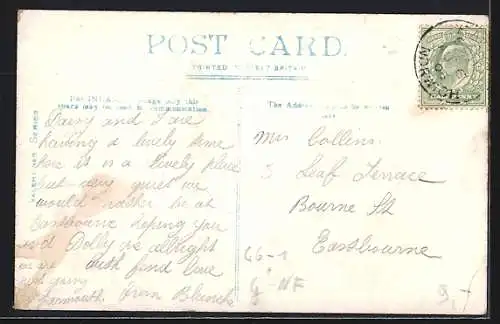 POST CARD.
PRINTED IN GREAT BRITAIN
For INLAND Postage only this
space may be used for communication.
The Address to be written
here
VALENTINES SERIES
NORWICH
Daisy and I are
having a lovely time
here it is a lovely place
but very quiet we
would rather be at
Eastbourne hoping you
and Dolly is allright
we are
with fond love
just going
Yarmouth. From Blanch
Mrs Collins.
3 Leaf Terrace
Bourne St
Eastbourne
66-1
G-NF